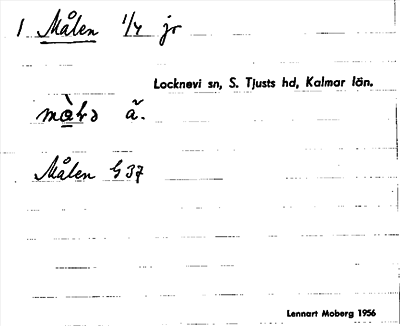 1 Målen 1/4 jr
Locknevi sn, S. Tjusts hd, Kalmar län.
ä.
Målen G 37
Lennart Moberg 1956